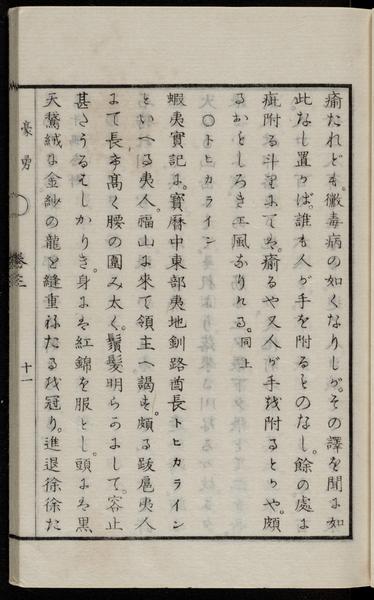 瘉たれども。黴毒病の如くなりしが。その譯を聞に如
此なし置ケば。誰も人が手を附るとのなし。餘の處は
疵附る斗にては。瘉るや又人が手残附るとりや。頗
るおそしろき工風なりける。同上
〇トヒカライン
蝦夷實記に。寶暦中東部夷地釧路酋長トヒカライン
といへる夷人。福山に來て領主へ謁す。頗る跋扈夷人
にて長ケ高く腰の圍み太く。鬚髮明らかにして。容止
甚さうるはしかりき。身には紅錦を服とし。頭には黒
天鵞絨に金紗の龍を縫重ねたる残冠り。進退徐徐た
豪勇
十一